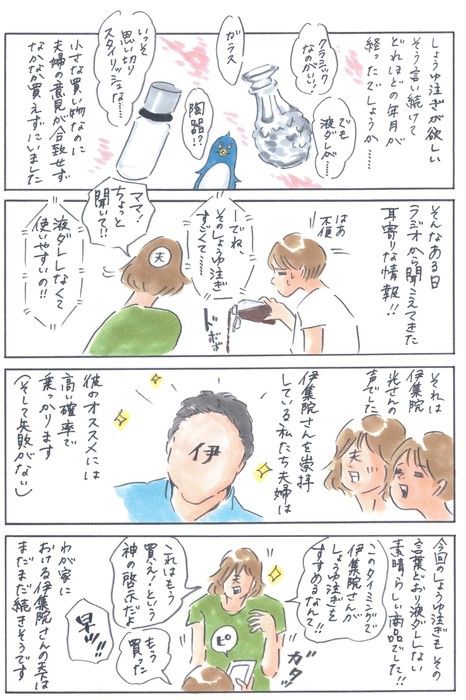 しょうゆ注ぎが欲しい
そう言い続けて
どれほどの年月が
経ったでしょうか……
クラシック
なのがいい?
でも
液ダレが…
ガラス
陶器?
いっそ
思い切り
スタイリッシュな……
小さな買い物なのに
夫婦の意見が合致せず
なかなか買えずにいました
そんなある日
ラジオから聞こえてきた
耳寄りな情報!!
はあ
不便
ドボボ
ーでね、
そのしょうゆ注ぎ
すごくて……
夫
ママ!
ちょっと
聞いて!!
液ダレしなくて
使いやすいの!!
それは
伊集院
光さんの
声でした
夫
伊集院さんを崇拝
している私たち夫婦は
伊
彼のオススメには
高い確率で
乗っかります
(そして失敗がない)
今回のしょうゆ注ぎもその
言葉どおり液ダレしない
素晴らしい商品でした!!
このタイミングで
伊集院さんが
しょうゆ注ぎを
すすめるなんて!!
ガタッ
夫
ピ
これはもう
買え!という
神の啓示だよ
もう
買った
早ッ!!
わが家に
おける伊集院さんの天下は
まだまだ続きそうです